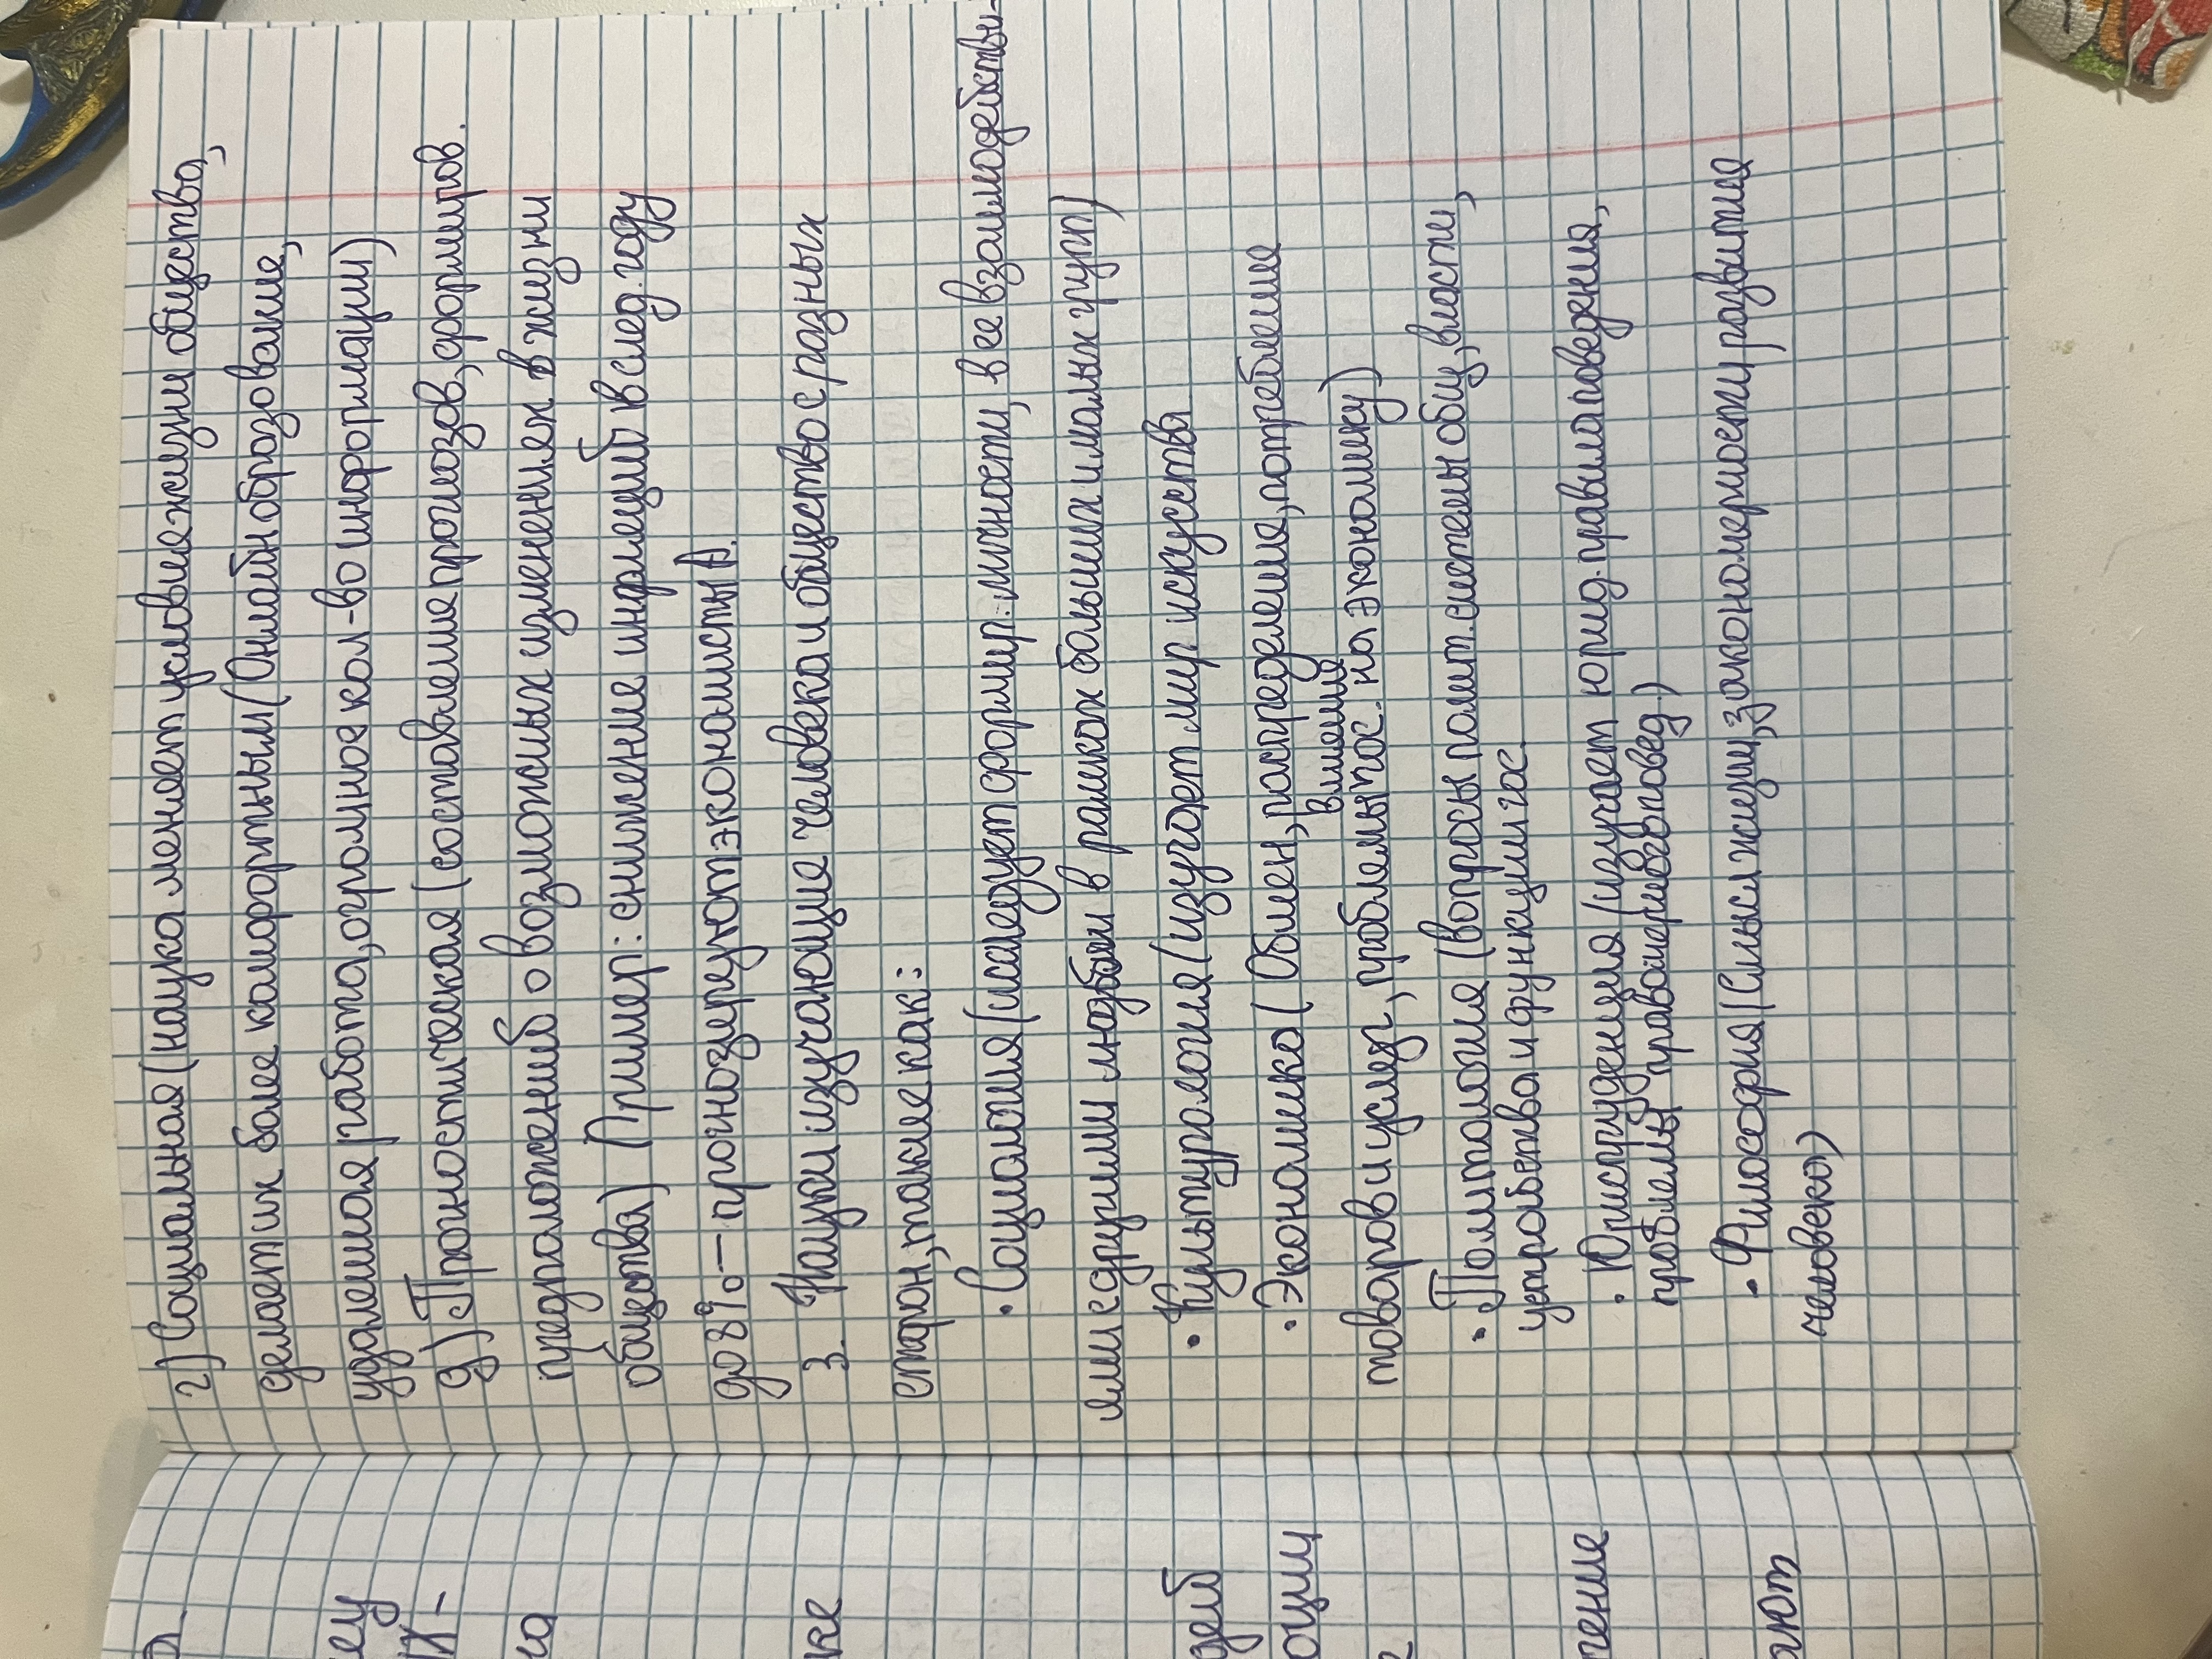 г) Социальная (наука меняет условия жизни общества,
делает их более комфортным (Онлайн образование,
удаленная работа, огромное кол-во информации)
д) Прогностическая (составление прогнозов, формиров.
предположений о возможных изменениях в жизни
общества) Пример: снижение инфляций в след. году
до 8% - прогнозируют экономисты.
3. Науки изучающие человека и общество с разных
сторон, такие как:
• Социология (исследует формир. личности, в ее взаимодействи-
ями с другими людьми в рамках больших и малых групп)
• Культурология (изучает мир искусства
• Экономика (Обмен, распределения, потребления
товаров и услуг, проблемы гос. влияния на экономику)
• Политология (вопросы полит. системы общ, власти,
устройства и функции гос.
• Юриспруденция (изучает юрид. правила поведения,
проблемы правомерного повед.)
• Философия (Смысл жизни, закономерности развития
человека)
еу
IX-
на
ке
дей
оции
тение
ают